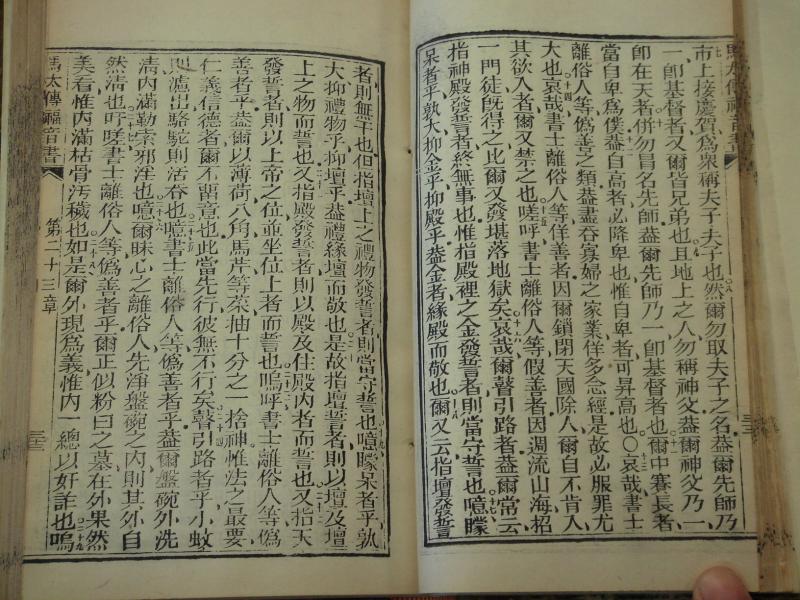 市上接慶賀爲衆稱夫子夫子也然爾勿取夫子之名蓋爾先師乃
一卽基督者又爾皆兄弟也且地上之人勿稱神父蓋爾神父乃一
卽在天者併勿冒名先師蓋爾先師乃一卽基督者也爾中賽長者
當自卑爲僕蓋自高者必降卑也惟自卑者可昇高也○哀哉書士
離俗人等僞善之類蓋盡吞寡婦之家業佯多念經是故必服罪尤
大也哀哉書士離俗人等佯善者因爾鎖閉天國除人爾自不肯入
其欲人者爾又禁之也嗟呼書士離俗人等假善者因週流山海招
一門徒旣得之此爾又發堪落地獄矣哀哉爾瞽引路者蓋爾常云
指神殿發誓者終無事也惟指殿裡之金發誓者則當守誓也噫矇
呆者乎孰大抑金乎抑殿乎蓋金者緣殿而敬也爾又云指壇發誓
者則無干也但指壇上之禮物發誓者則當守誓也噫矇呆者乎孰
大抑禮物乎抑壇乎蓋禮緣壇而敬也是故指壇誓者則以壇及壇
上之物而誓也又指殿發誓者則以殿及住殿內者而誓也又指天
發誓者則以上帝之位並坐位上者而誓也嗚呼書士離俗人等僞
善者乎蓋爾以薄荷八角馬芹等菜抽十分之一捨神惟法之最要
仁義信德者爾不畱意也此當先行彼無不行矣瞽引路者乎小蚊
則濾出駱駝則活吞也噫書士離俗人等僞善者乎蓋爾盤碗外洗
淸內滿勒索邪淫也噫爾昧心之離俗人先淨盤碗之內則其外自
然淸也吁嗟書士離俗人等僞善者乎爾正似粉白之墓在外果然
美看惟內滿枯骨汚穢也如是爾外現爲義惟內一總以奸詐也嗚
馬太傳福音書 第二十三章